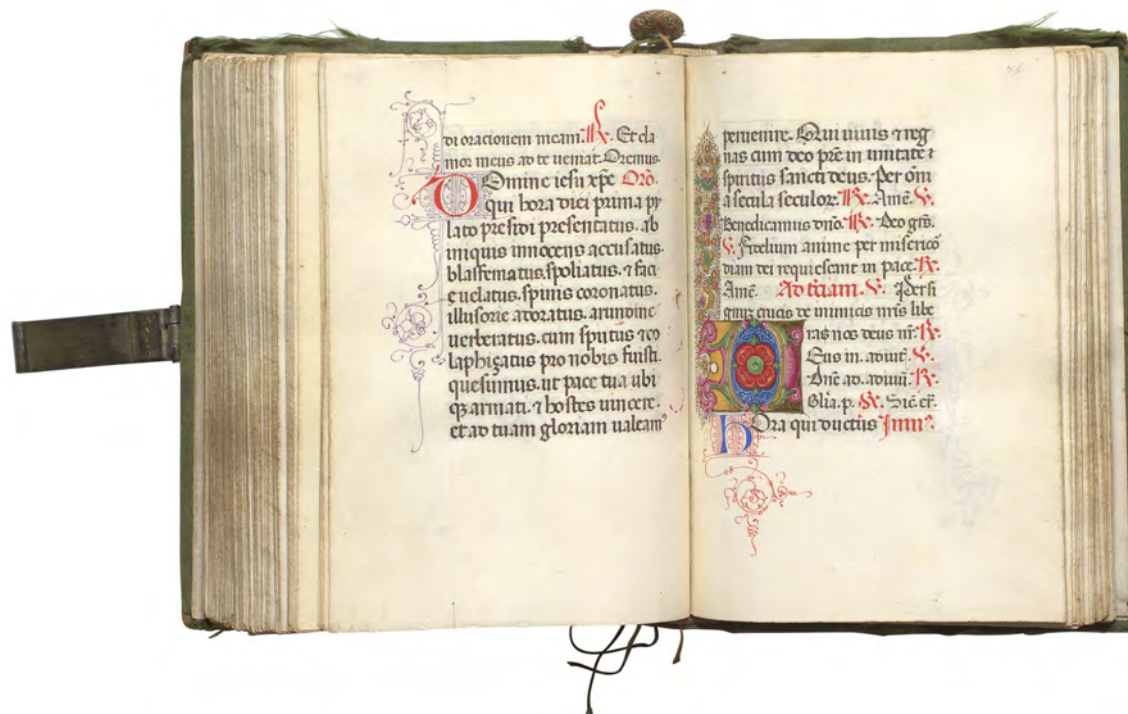 di orationem meam. R. Et cla
mor meus ad te ueniat. Oremus
Domine iesu xpe Oro.
qui hora diei prima py
lato presidi presentatus. ab
iniquis innocens accusatus.
blasfematus. spoliatus. ⁊ faci
e uelatus. spinis coronatus.
illusorie adoratus. arundine
uerberatus. cum sputus ⁊ co
laphizatus pro nobis fuisti.
quesumus. ut pace tua ubi
qꝫ armati. ⁊ hostes uincere.
et ad tuam gloriam ualeamꝰ
peruenire. Qui uiuis ⁊ reg
nas cum deo pre in unitate
spiritus sancti deus. Per om
a secula seculor. R. Ame. V.
Benedicamus dno. R. Deo gras.
V. Fidelium anime per miserico
diam dei requiescant in pace. R.
Ame. Ad terciam. V. Per si
gnum crucis de inimicis nris libe
ra nos deus nr. R.
Deus in. adiut. V.
Dne ad. adiuu. R.
Glia. p. R. Sic er.
Hora qui ductus Imnꝰ.